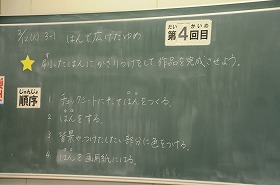 3-1 はんで広げたゆめ
だい かいめ
第4回目
刷ったはんにかざりつけをして作品を完成させよう。
じゅんじょ
順序
1 チェックシートにそってはんをつくる。
2 はんをする。
3 背景やつけたしたい部分に色をつける。
4 はんを画用紙にはる。